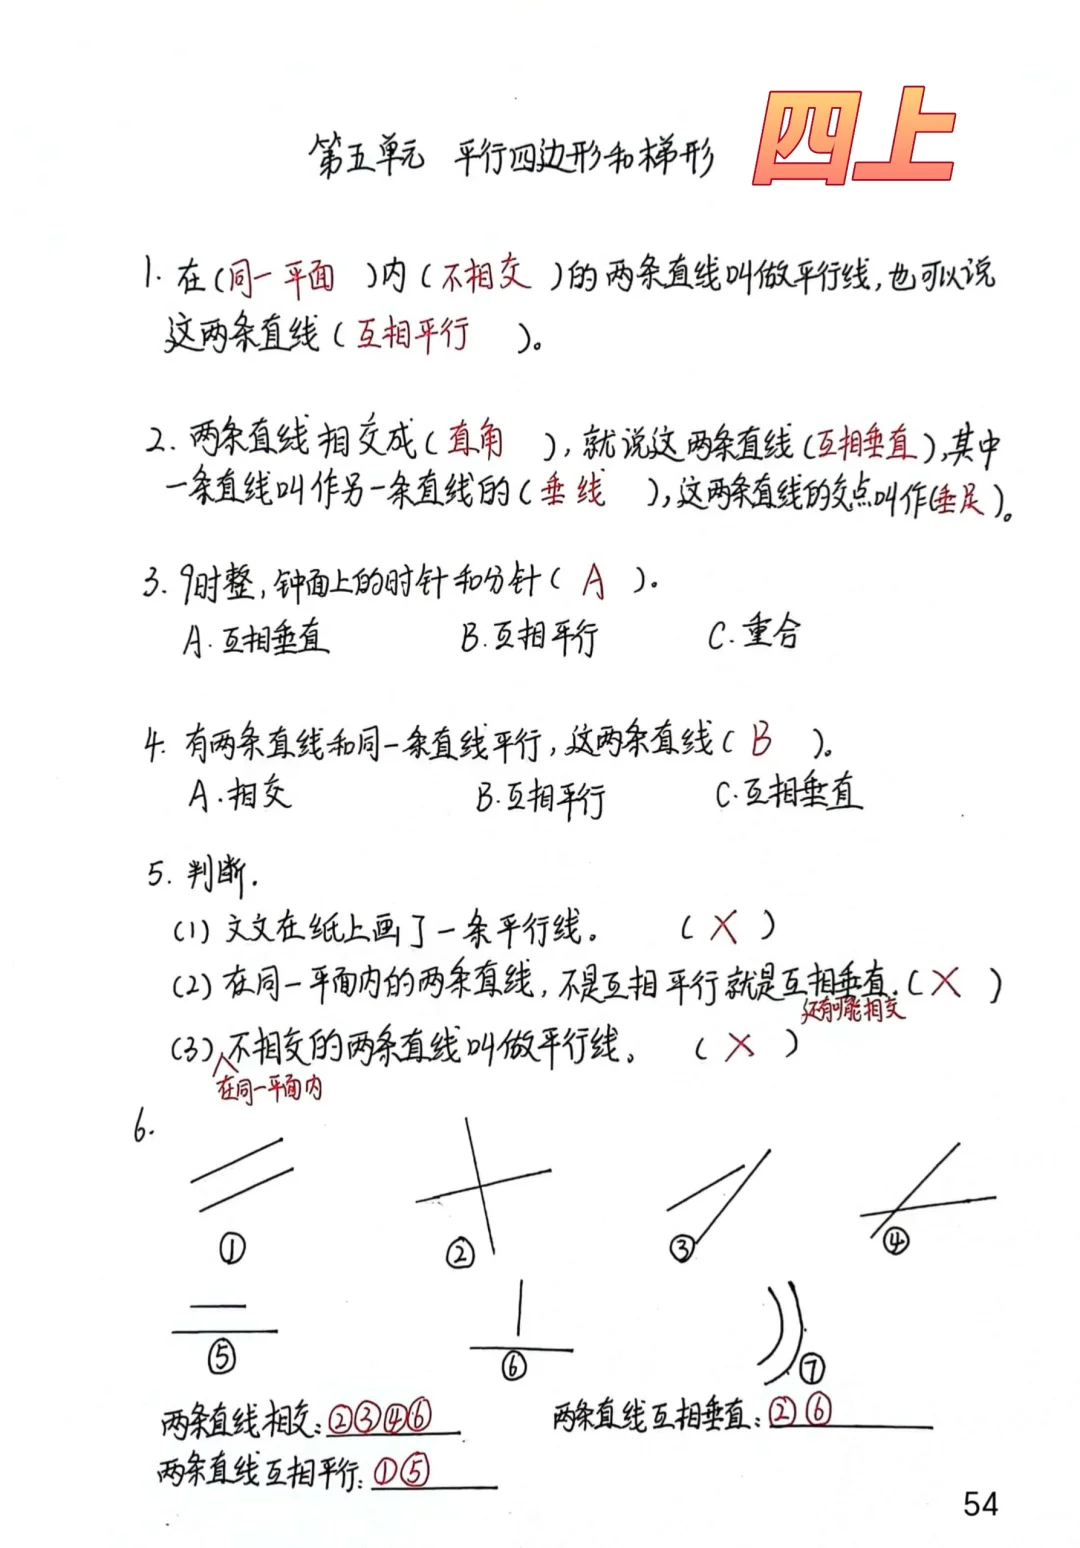 四上
第五单元 平行四边形和梯形
1. 在(同一平面 )内(不相交 )的两条直线叫做平行线,也可以说
这两条直线(互相平行 )。
2. 两条直线相交成(直角 ),就说这两条直线(互相垂直),其中
一条直线叫作另一条直线的(垂线 ),这两条直线的交点叫作(垂足)。
3. 9时整,钟面上的时针和分针( A )。
A. 互相垂直 B. 互相平行 C. 重合
4. 有两条直线和同一条直线平行,这两条直线( B )。
A. 相交 B. 互相平行 C. 互相垂直
5. 判断.
(1) 文文在纸上画了一条平行线。 ( X )
(2) 在同一平面内的两条直线,不是互相平行就是互相垂直.( X )
还有可能相交
(3) 不相交的两条直线叫做平行线。 ( X )
在同一平面内
6.
① ② ③ ④
⑤ ⑥ ⑦
两条直线相交:②③④⑥ 两条直线互相垂直:②⑥
两条直线互相平行:①⑤
54